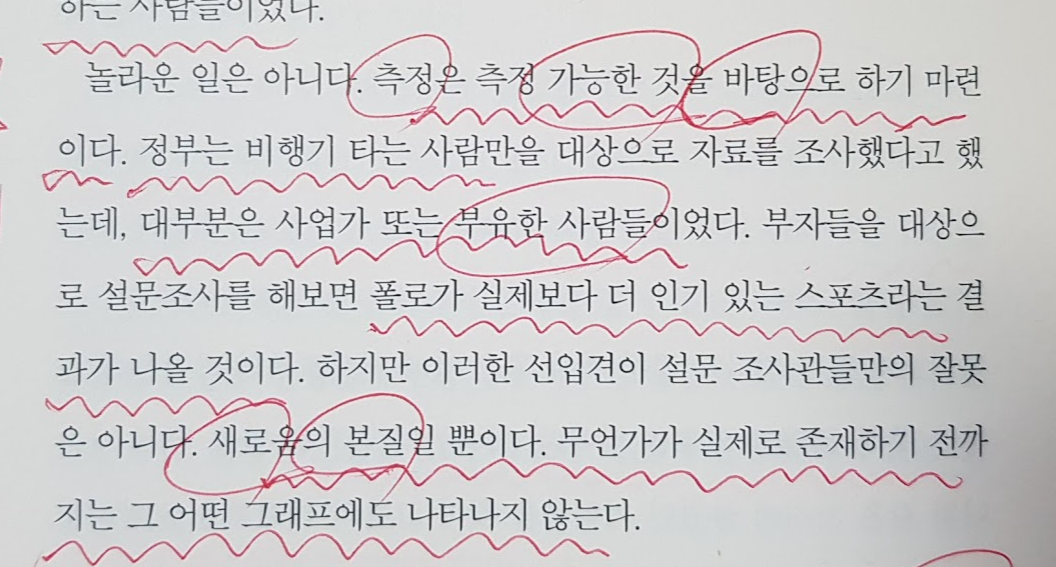 하는 사람들이었다.
놀라운 일은 아니다. 측정은 측정 가능한 것을 바탕으로 하기 마련
이다. 정부는 비행기 타는 사람만을 대상으로 자료를 조사했다고 했
는데, 대부분은 사업가 또는 부유한 사람들이었다. 부자들을 대상으
로 설문조사를 해보면 폴로가 실제보다 더 인기 있는 스포츠라는 결
과가 나올 것이다. 하지만 이러한 선입견이 설문 조사관들만의 잘못
은 아니다. 새로움의 본질일 뿐이다. 무언가가 실제로 존재하기 전까
지는 그 어떤 그래프에도 나타나지 않는다.